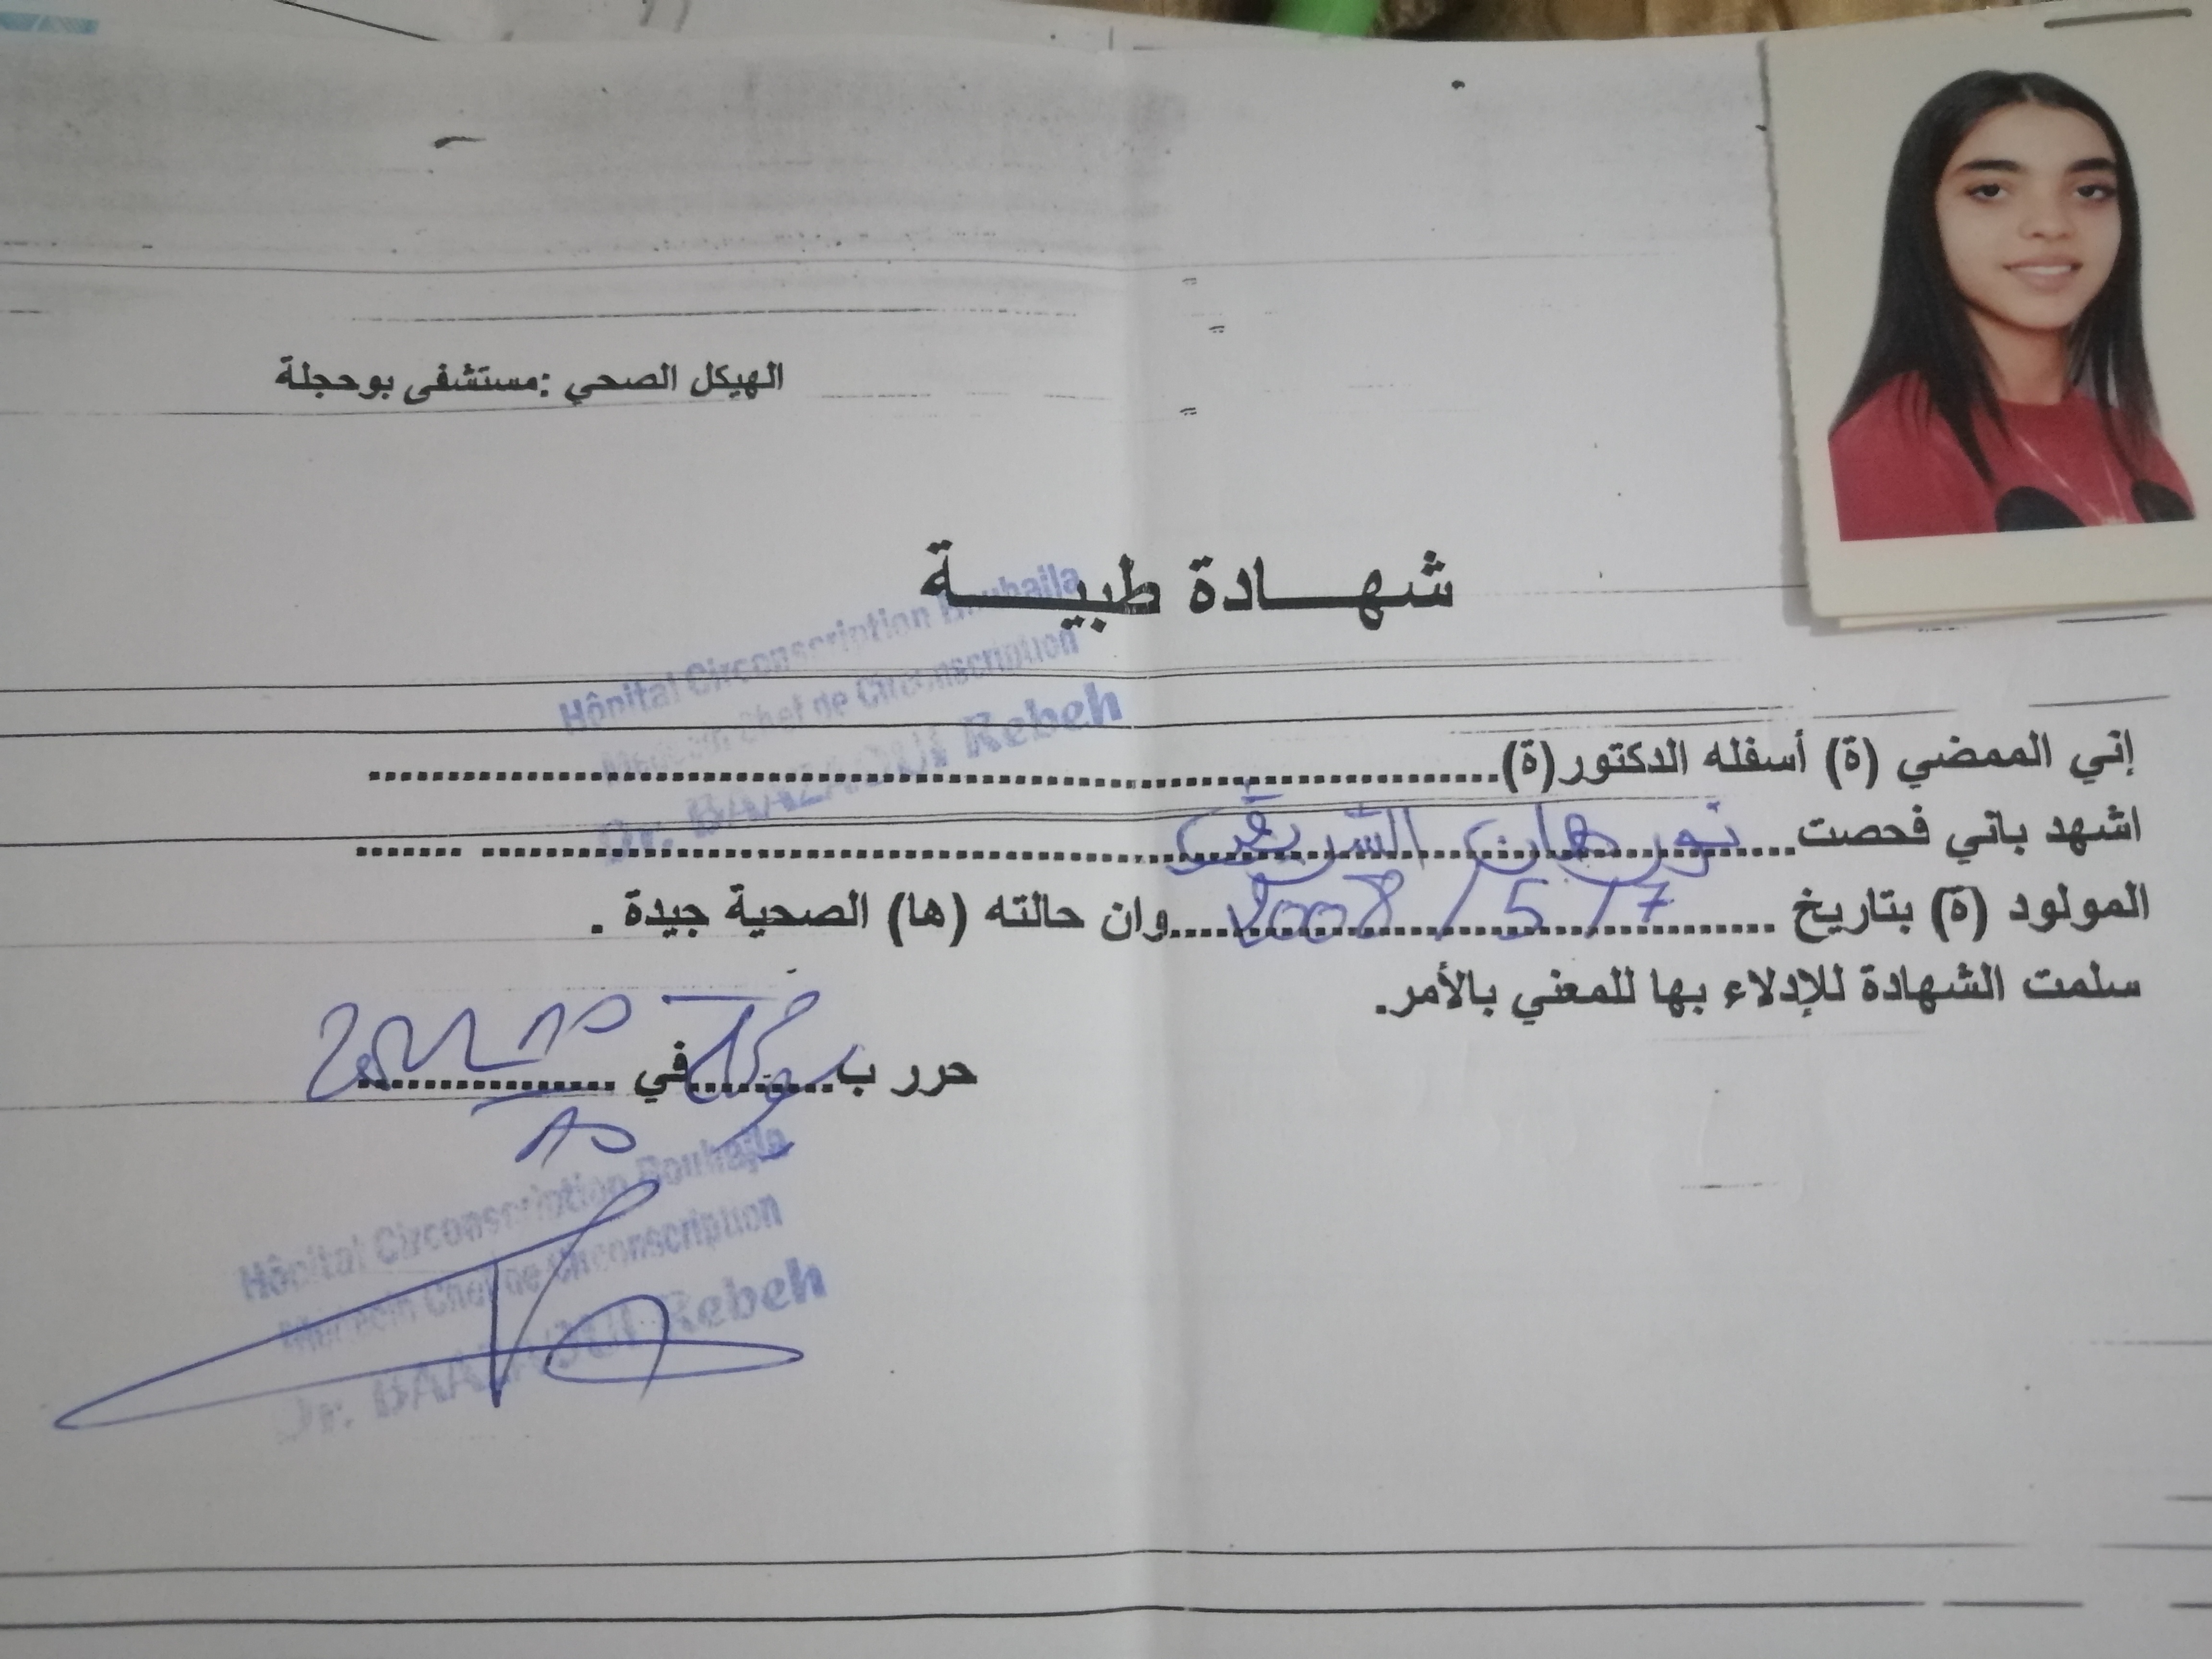 الهيكل الصحي :مستشفى بوحجلة
شهـــادة طبيـــة
Hôpital Circonscription Bouhajla
Médecin Chef de Circonscription
Dr. BAAZAOUI Rebeh
إني الممضي (ة) أسفله الدكتور(ة)................................
اشهد باني فحصت....نورهان الشريقي................................
المولود (ة) بتاريخ ........2008/5/7........وان حالته (ها) الصحية جيدة .
سلمت الشهادة للإدلاء بها للمعني بالأمر.
حرر ب..........في ................
Hôpital Circonscription Bouhajla
Médecin Chef de Circonscription
Dr. BAAZAOUI Rebeh